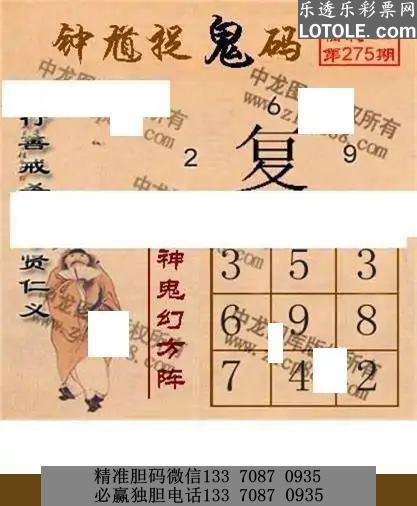 乐透乐彩票网
LOTOLE.COM
钟馗捉鬼码
第275期
6
2 复 9
行善戒
贤仁义
神鬼幻方阵
3 5 3
6 9 8
7 4 2
精准胆码微信133 7087 0935
必赢独胆电话133 7087 0935